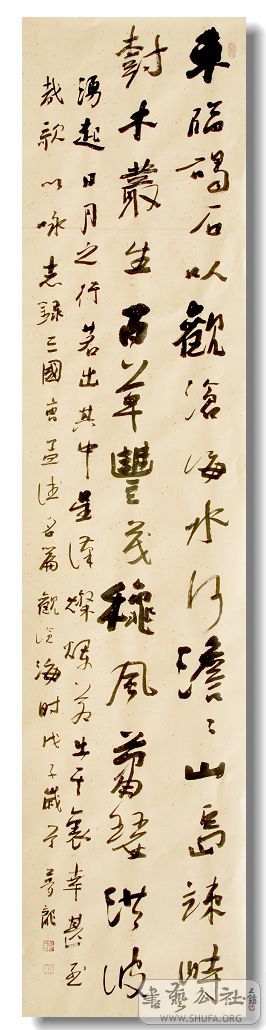 東臨碣石以觀滄海水何澹々山島竦峙
樹木叢生百草豐茂穐風蕭瑟洪波
湧起日月之行若出其中星漢燦爛若出其裏幸甚至
哉歌以咏志錄三國曹孟德名篇觀滄海时戊子歲
書藝公社
WWW.SHUFA.ORG